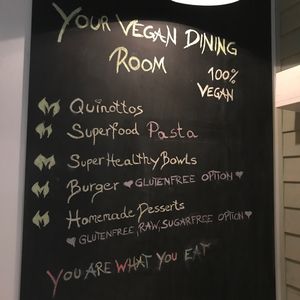 Your Vegan Dining
Room
100%
Vegan
Quinottos
Superfood Pasta
Super Healthy Bowls
Burger ♥ Glutenfree Option ♥
Homemade Desserts
♥ Glutenfree, Raw, Sugarfree Option ♥
You are what you eat